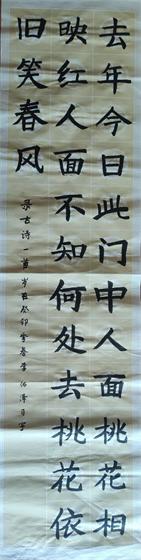 去年今日此门中人面桃花相
映红人面不知何处去桃花依
旧笑春风
录古诗一首岁在癸卯金春